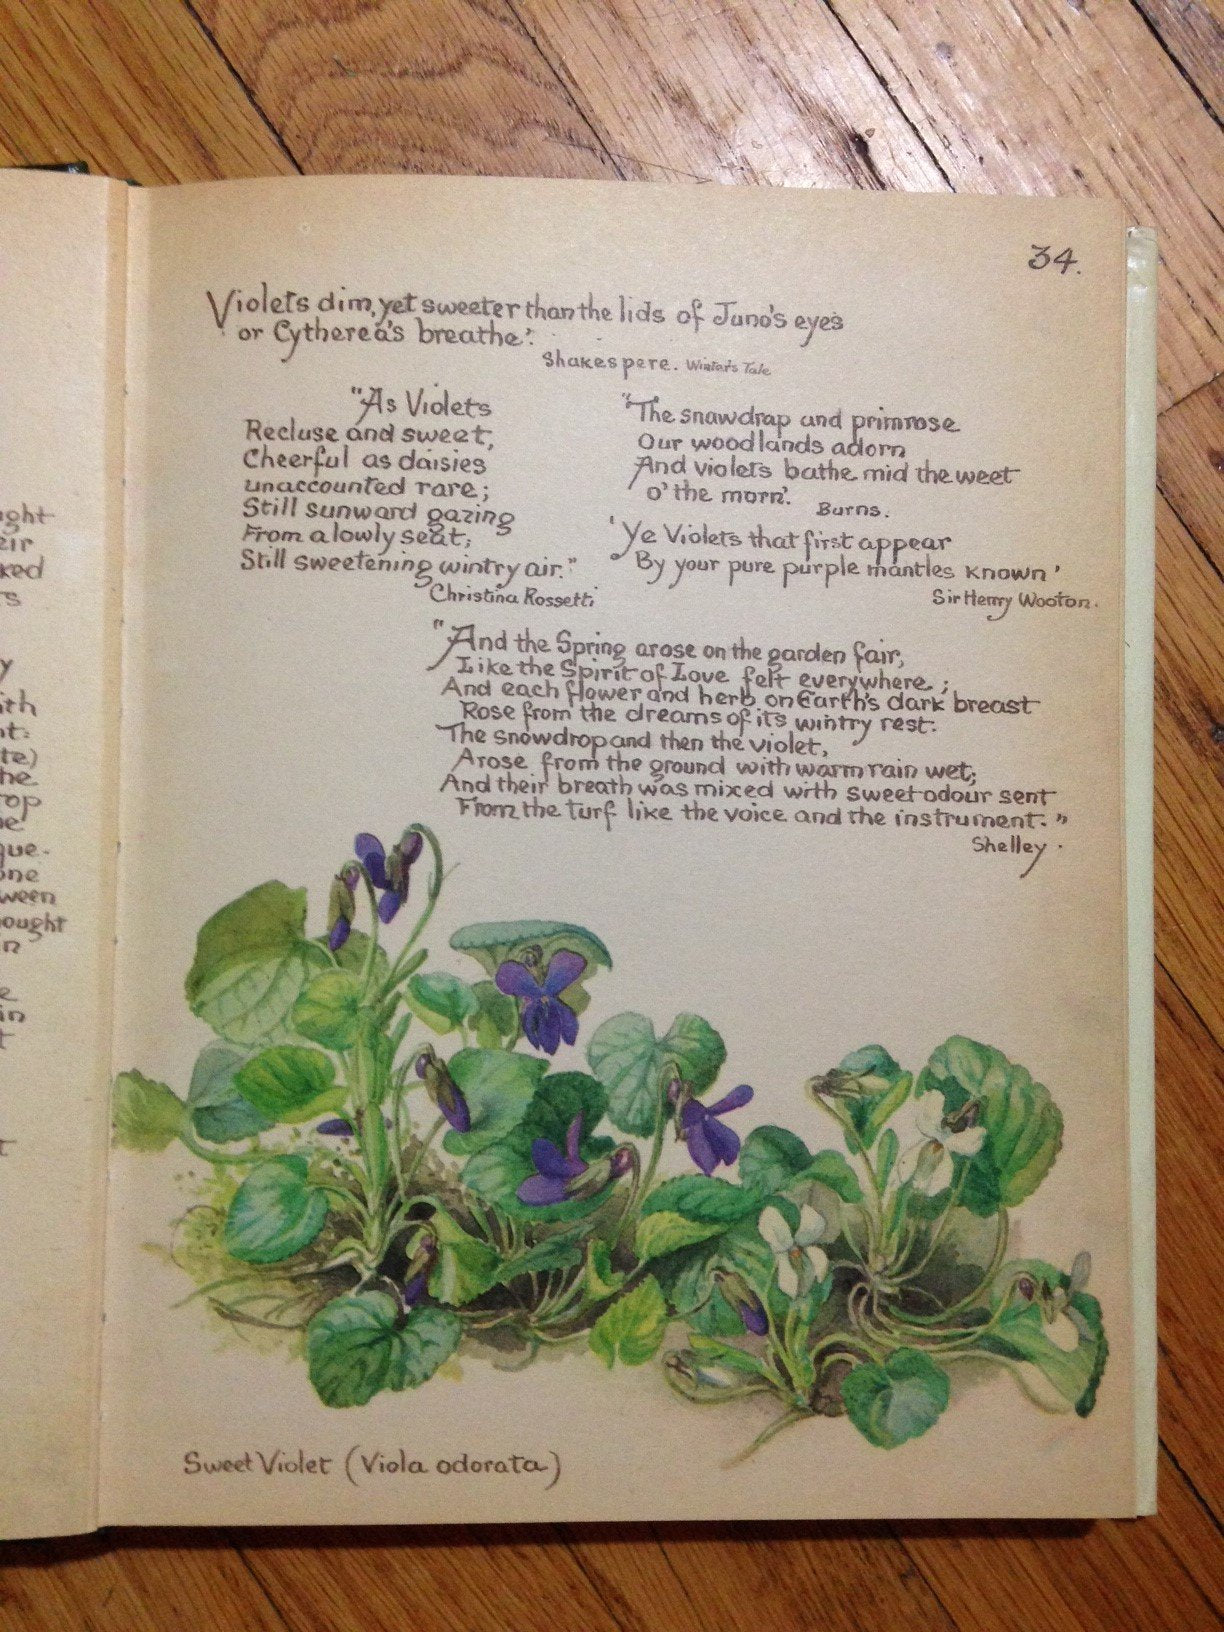 ght
eir
ked
s
y
ith
nt:
te)
he
rop
he
que-
one
ween
ought
in
e
in
t
t
34.
Violets dim, yet sweeter than the lids of Juno's eyes
or Cytherea's breathe'.
Shakespere. Winter's Tale
"As Violets
Recluse and sweet,
Cheerful as daisies
unaccounted rare;
Still sunward gazing
From a lowly seat,
Still sweetening wintry air."
Christina Rossetti
"The snawdrap and primrose
Our woodlands adorn
And violets bathe mid the weet
o' the morn'.
Burns.
'Ye Violets that first appear
By your pure purple mantles known'
Sir Henry Wooton.
"And the Spring arose on the garden fair,
Like the Spirit of Love felt everywhere;
And each flower and herb on Earth's dark breast
Rose from the dreams of its wintry rest.
The snowdrop and then the violet,
Arose from the ground with warm rain wet;
And their breath was mixed with sweet odour sent
From the turf like the voice and the instrument."
Shelley.
Sweet Violet (Viola odorata)